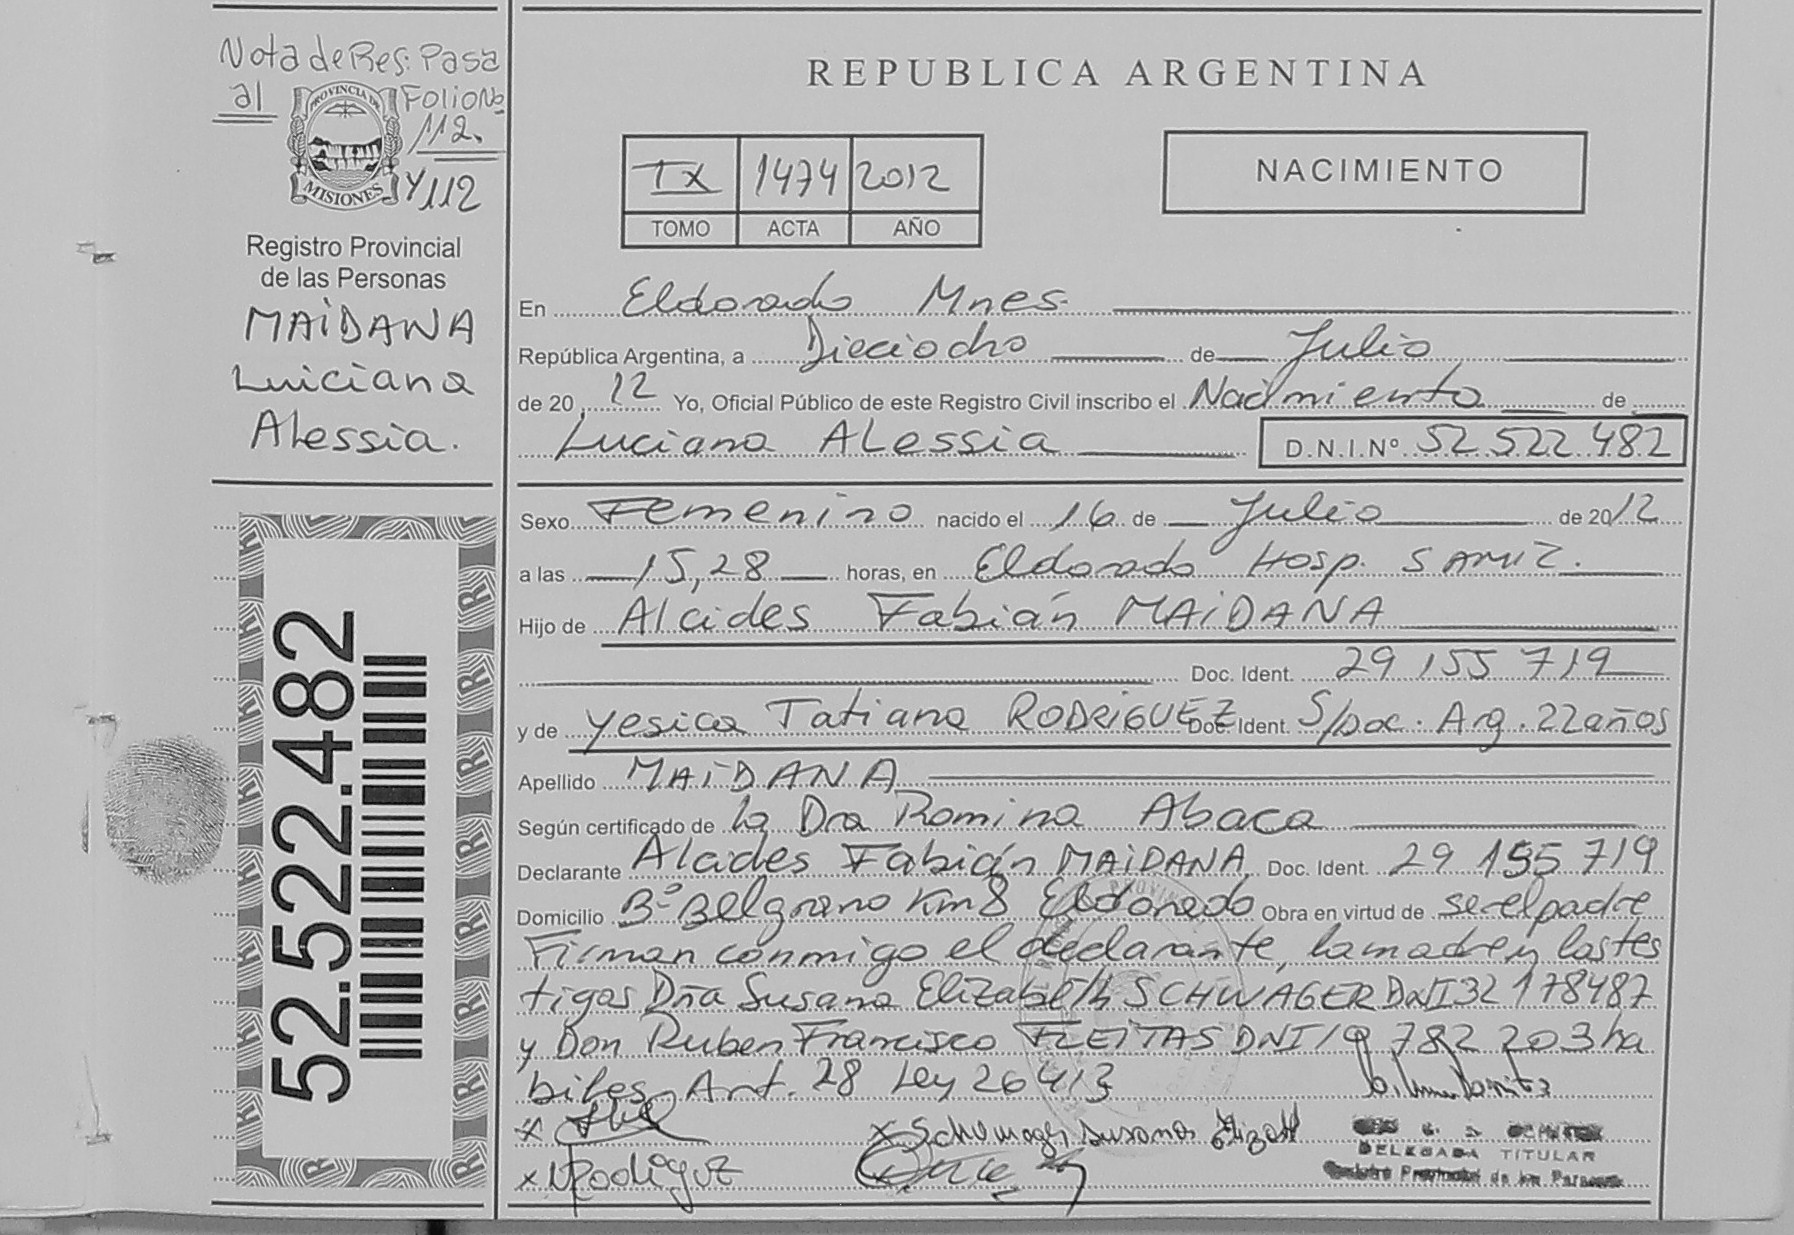 Nota de Res: Pasa
al Folio Nº
112.
Y 112
PROVINCIA DE
MISIONES
Registro Provincial
de las Personas
MAIDANA
Luiciana
Alessia.
52.522.482
REPUBLICA ARGENTINA
IX 1474 2012
TOMO ACTA AÑO
NACIMIENTO
En Eldorado Mnes.
República Argentina, a Dieciocho de Julio
de 20 12 Yo, Oficial Público de este Registro Civil inscribo el Nacimiento de
Luciana Alessia D.N.I.Nº 52.522.482
Sexo Femenino nacido el 16 de Julio de 2012
a las 15,28 horas, en Eldorado Hosp. SAMIC.
Hijo de Alcides Fabián MAIDANA
Doc. Ident. 29 155 719
y de Yesica Tatiana RODRIGUEZ Doc. Ident. S/Doc. Arg. 22 años
Apellido MAIDANA
Según certificado de la Dra Romina Abaca
Declarante Alcides Fabián MAIDANA Doc. Ident. 29 155 719
Domicilio Bº Belgrano Km 8 Eldorado Obra en virtud de ser el padre
Firman conmigo el declarante, la madre y los tes
tigos Dña Susana Elizabeth SCHWAGER DNI 32 178487
y Don Ruben Francisco FLEITAS DNI 19 782 203 ha
biles, Art. 28 Ley 26413
x
x Schwager Susana Elizabeth
x Rodriguez
DELEGADA TITULAR
Registro Provincial de las Personas